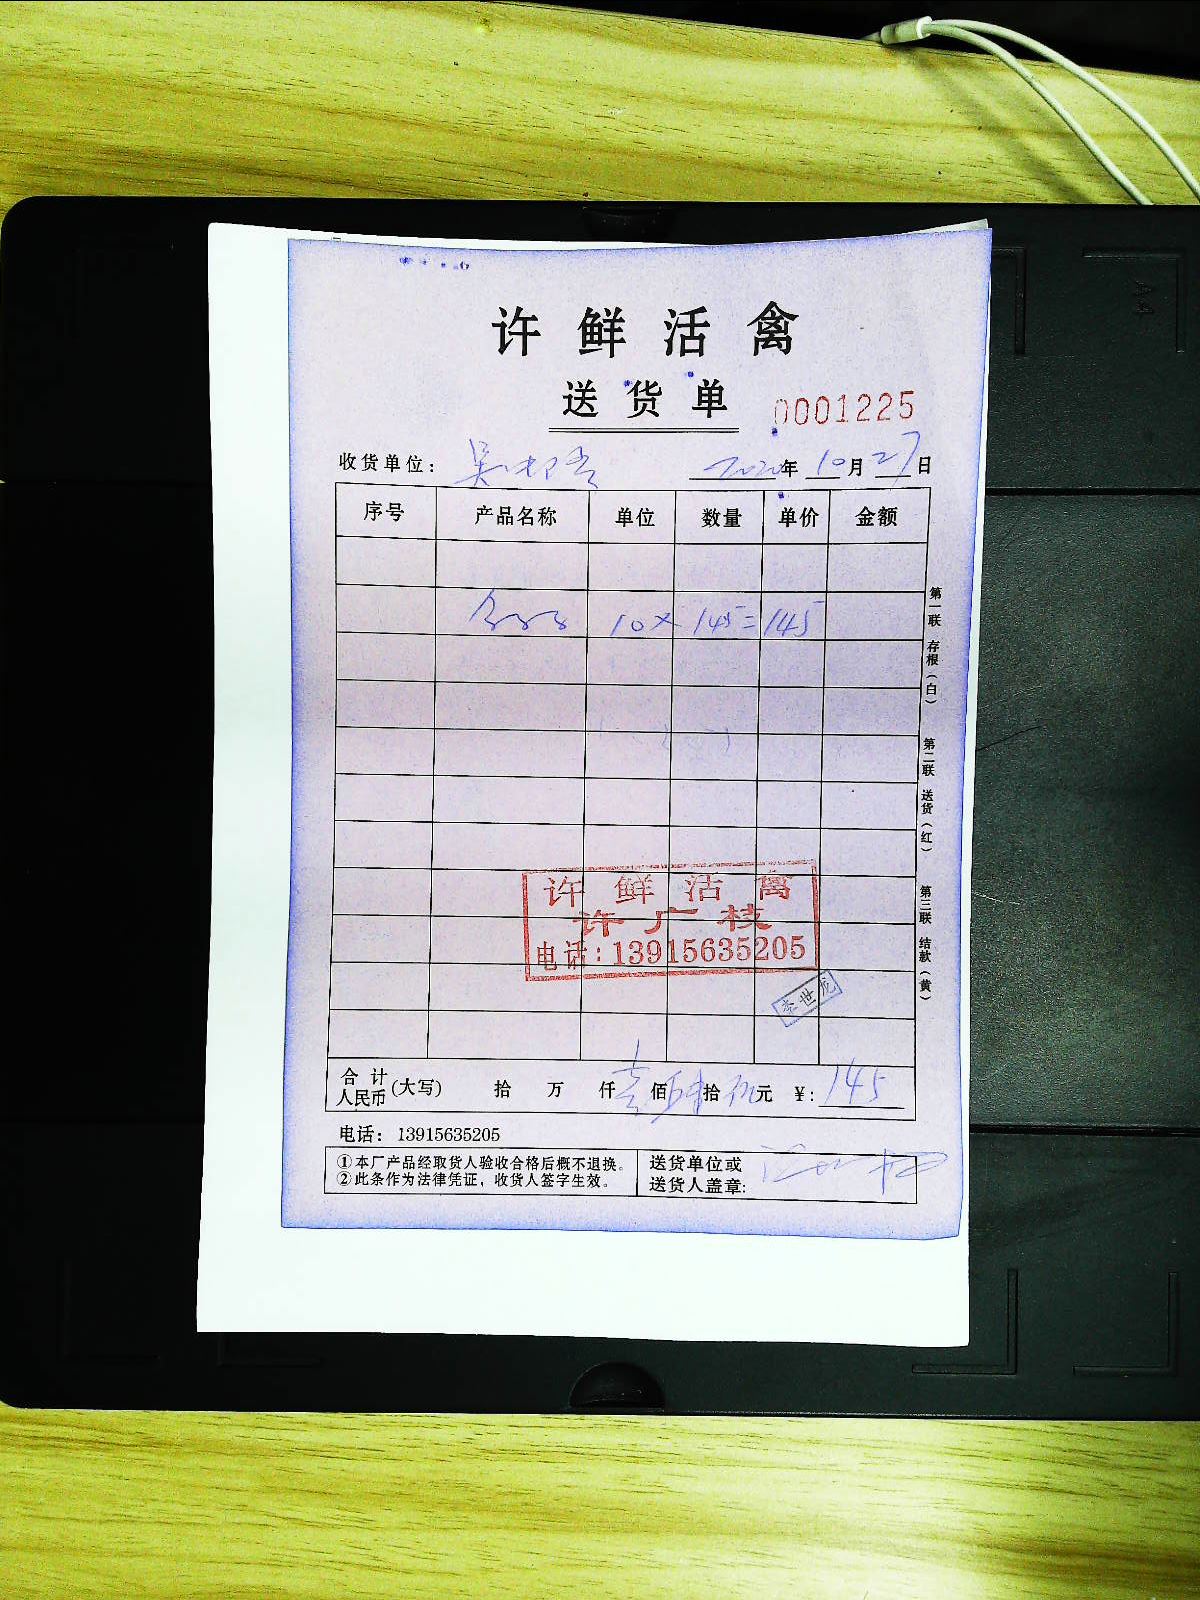 许鲜活禽
送货单
0001225
收货单位： 2020年 10月 27日
序号 产品名称 单位 数量 单价 金额
10 × 145 = 145
第一联 存根（白）
第二联 送货（红）
第三联 结款（黄）
许鲜活禽
许广枝
电话：13915635205
李世龙
合计人民币(大写) 拾 万 仟 壹佰 肆拾 伍元 ¥：145
电话：13915635205
①本厂产品经取货人验收合格后概不退换。
②此条作为法律凭证，收货人签字生效。
送货单位或
送货人盖章:
A4